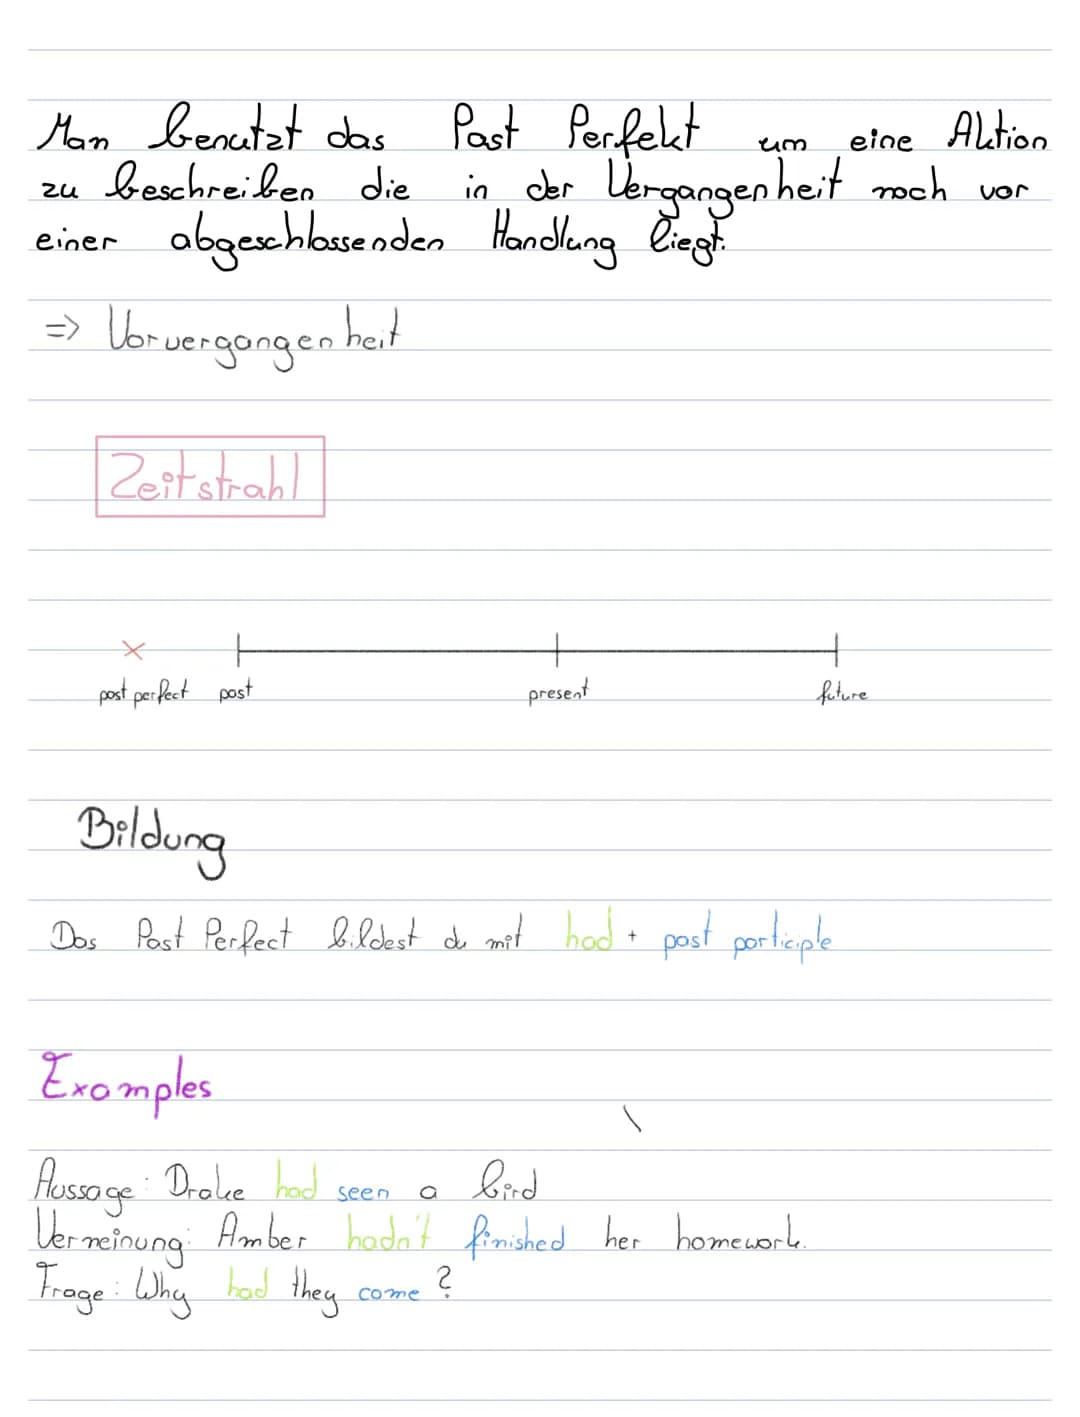 Man benutzt das Past Perfekt um eine Aktion
zu beschreiben die in der Vergangenheit noch vor
einer abgeschlossenden Handlung liegt.
=> Vorvergangenheit
Zeitstrahl
past perfect past present future
Bildung
Das Past Perfect bildest du mit had + past participle
Examples
Aussage: Drake had seen a bird
Verneinung: Amber hadn't finished her homework.
Frage: Why had they come?